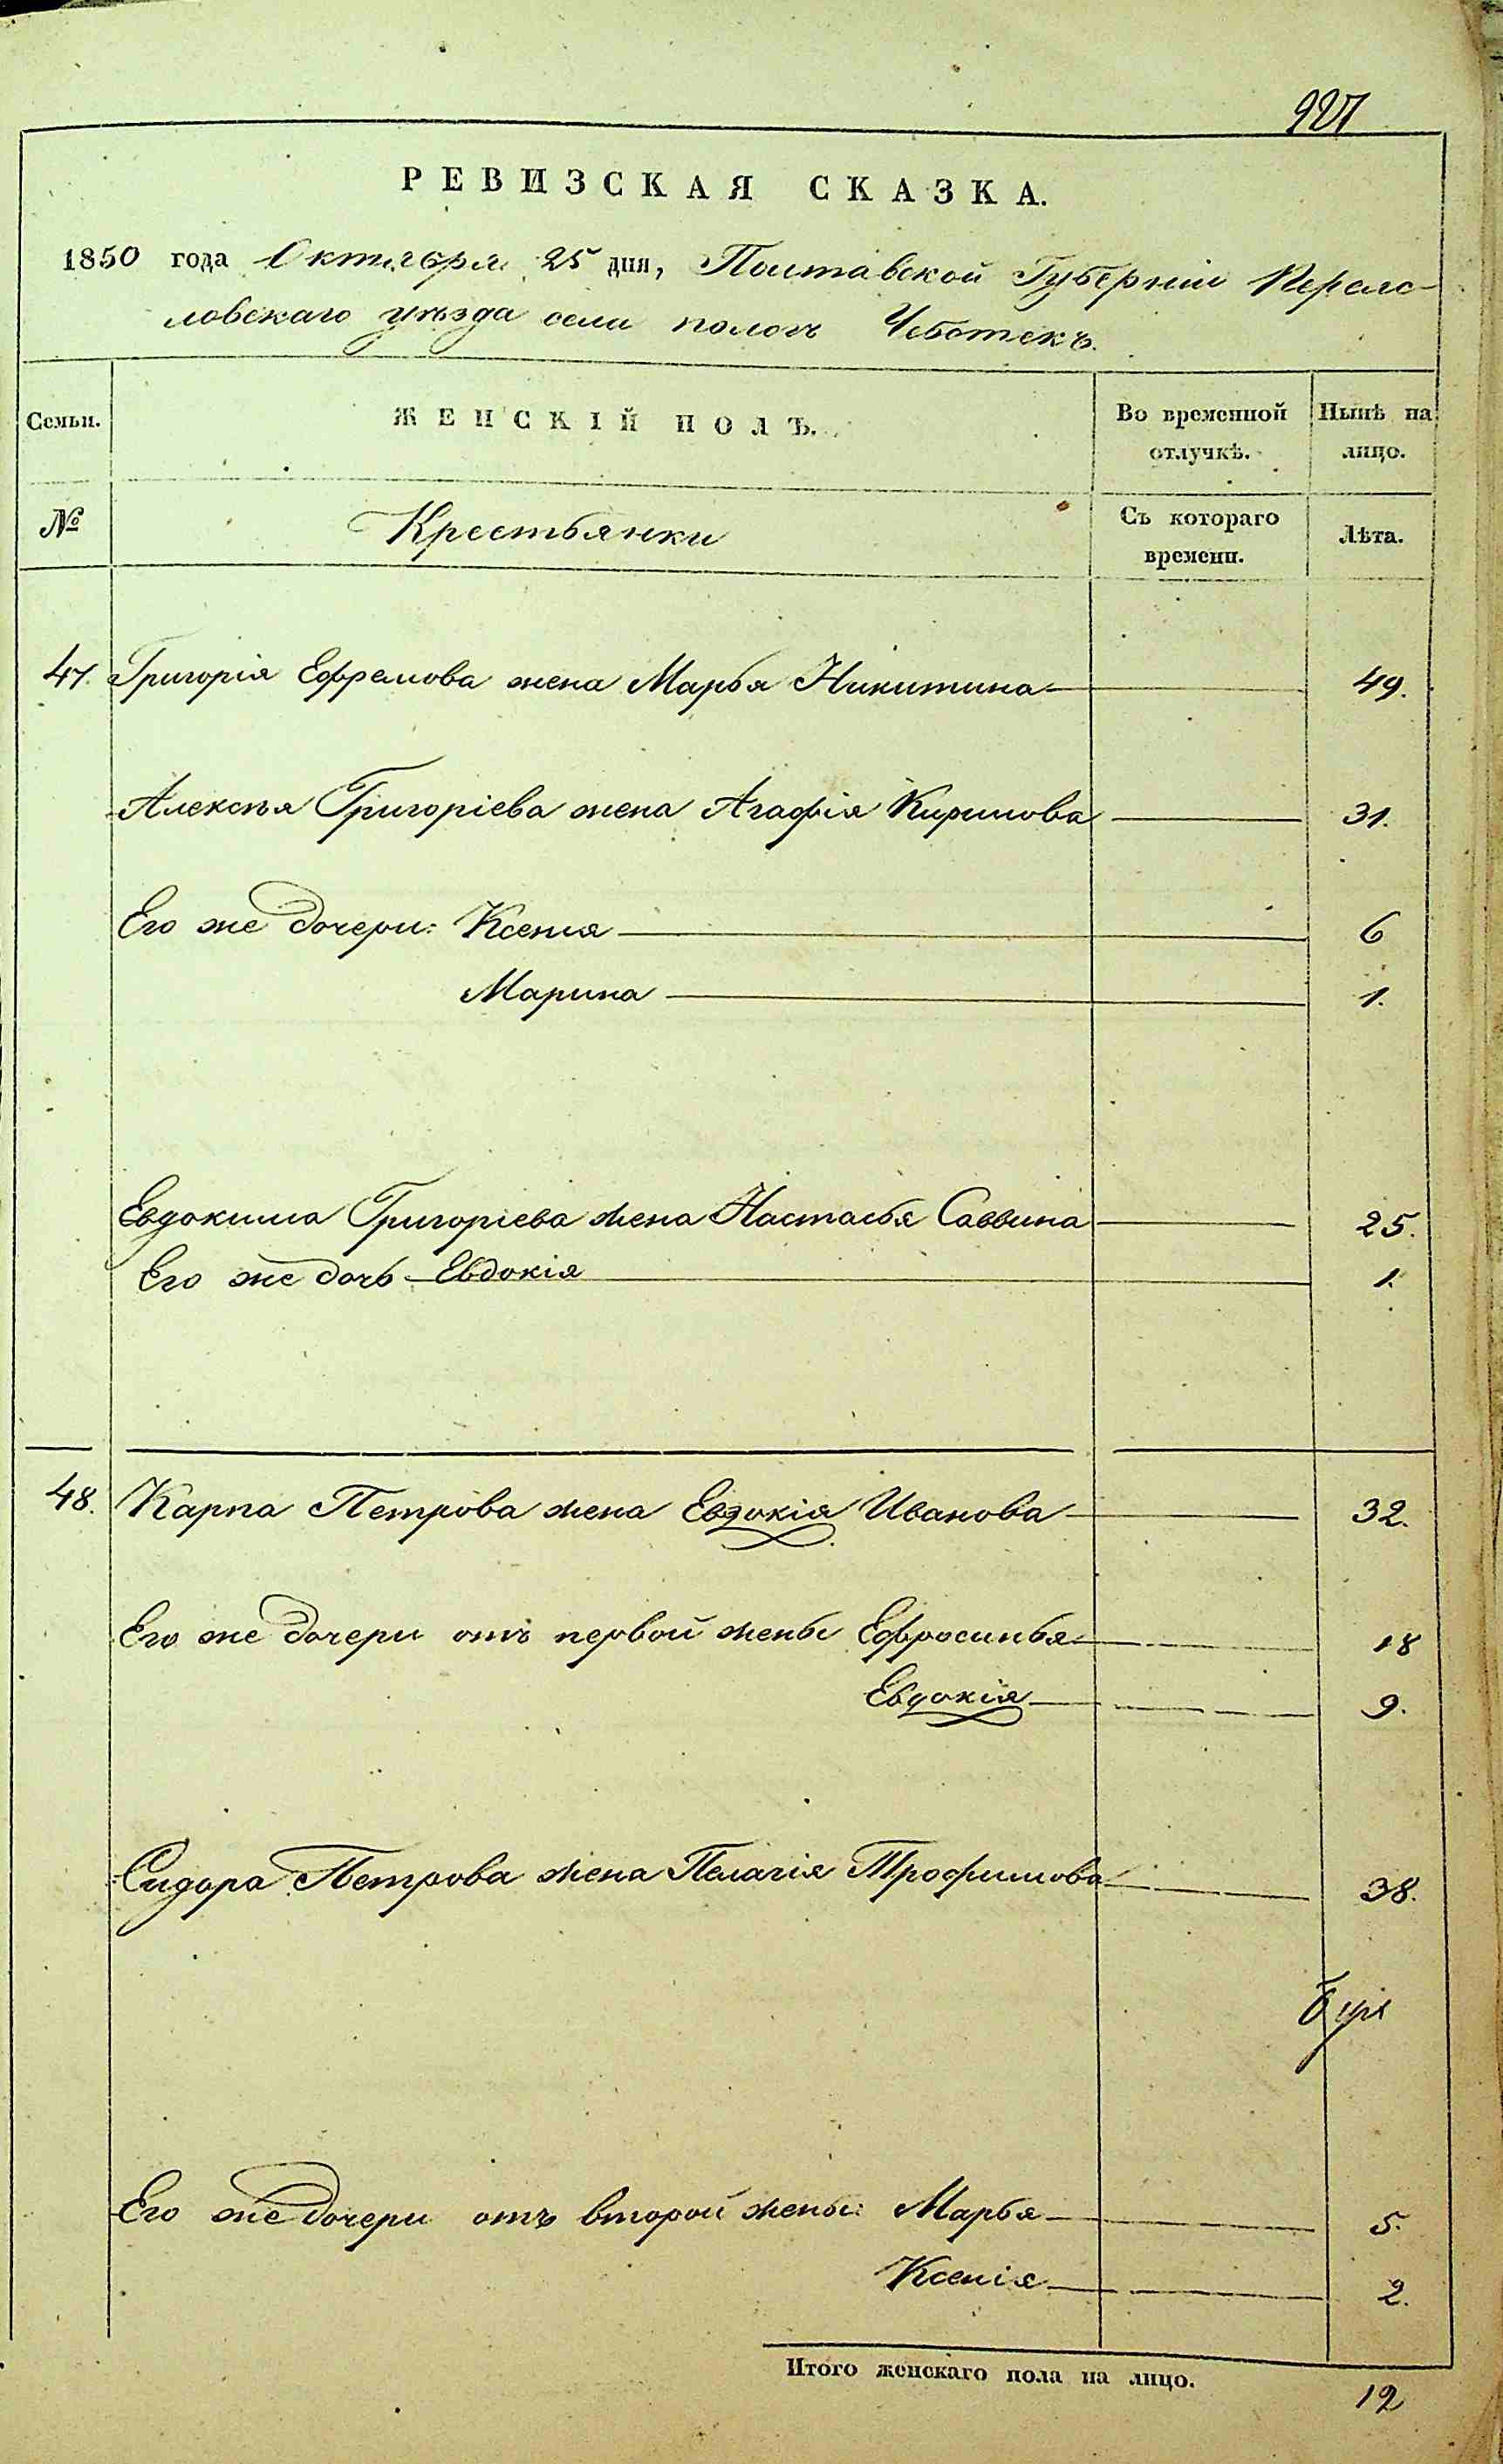 РЕВИЗСКАЯ СКАЗКА.
1850 года Октября 25 дня, Полтавской Губерніи Переяс-
ловскаго уѣзда села пологъ Чеботекъ.
Семьи. ЖЕНСКІЙ ПОЛЪ. Во временной отлучкѣ. Нынѣ на лицо.
№ Крестьянки Съ котораго времени. Лѣта.
47. Григорія Ефремова жена Марья Никитина 49.
Алексѣя Григоріева жена Агафія Кирилова 31.
Его же дочери: Ксенія 6
Марина 1.
Евдокима Григоріева жена Настасья Саввина 25.
Его же дочь Евдокія 1.
48. Карпа Петрова жена Евдокія Иванова 32.
Его же дочери отъ первой жены Ефросинья 18
Евдокія 9.
Сидора Петрова жена Пелагія Трофимова 38.
Его же дочери отъ второй жены: Марья 5.
Ксенія 2.
Итого женскаго пола на лицо.
12